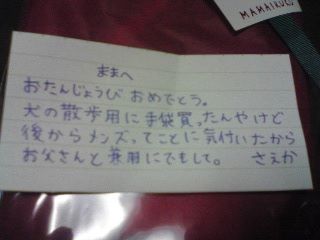 MAMAIKUKO
ままへ
おたんじょうび おめでとう。
犬の散歩用に手袋買ったんやけど
後からメンズってことに気付いたから
お父さんと兼用にでもして。 さえか